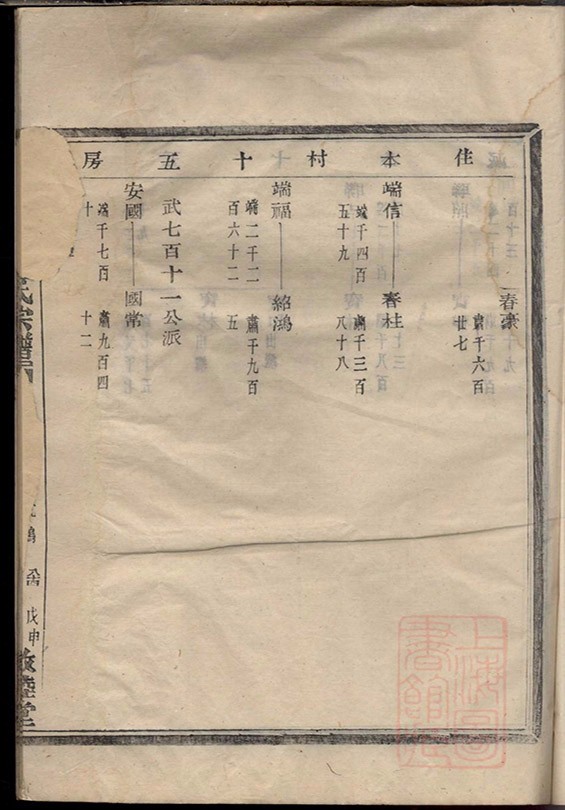 住本村十五房
春濠
肅千六百
廿七
端信 春桂
端千四百
五十九
肅千三百
八十八
端福 紹鴻
端二千二
百六十二
肅千九百
五
武七百十一公派
安國 國常
端千七百
十
肅九百四
十二
氏宗譜
戊申
敦睦堂
上海圖
書館藏